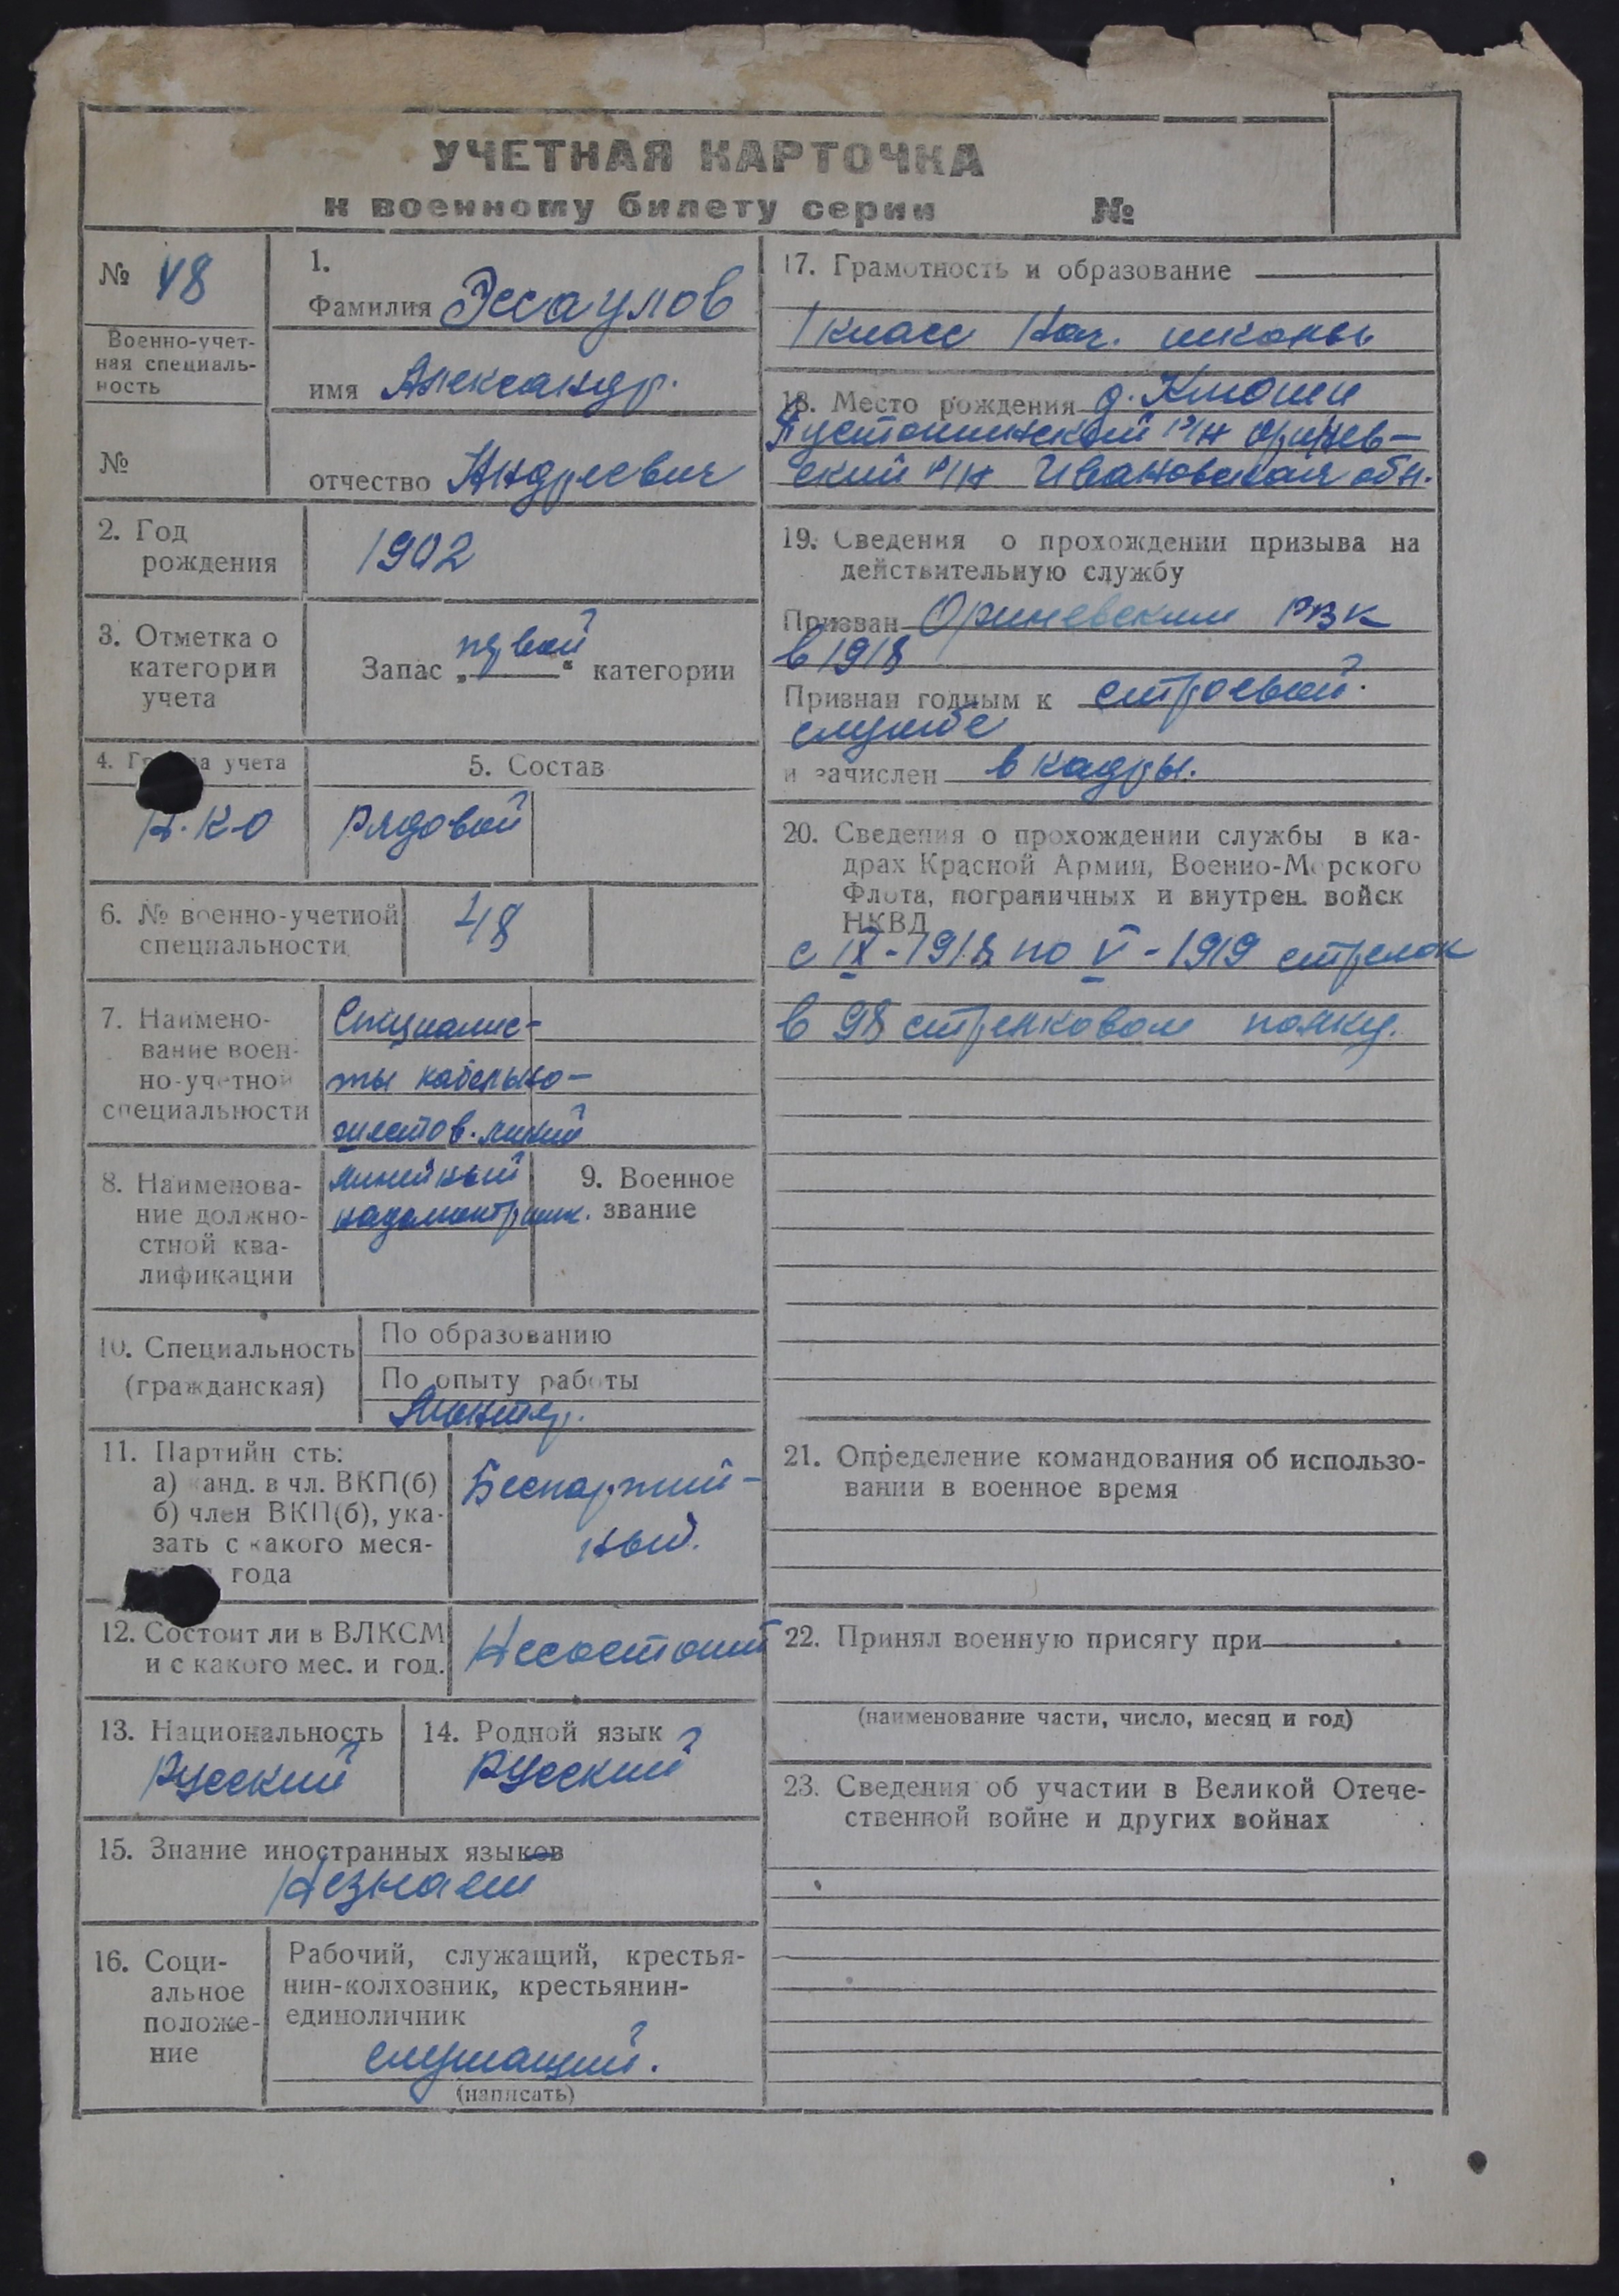 УЧЕТНАЯ КАРТОЧКА
к военному билету серии №
№ 48
Военно-учет-
ная специаль-
ность
№
1.
Фамилия Эссаулов
имя Александр.
отчество Андреевич
2. Год
рождения
1902
3. Отметка о
категории
учета
Запас „первой“ категории
4. Г а учета
Н.К.О
5. Состав
Рядовой
6. № военно-учетной
специальности
48
7. Наимено-
вание воен-
но-учетной
специальности
Специалис-
ты кабельно-
шестов. линий
8. Наименова-
ние должно-
стной ква-
лификации
линейный
надсмотрщик.
9. Военное
звание
10. Специальность
(гражданская)
По образованию
По опыту работы
Монтер.
11. Партийн сть:
а) канд. в чл. ВКП(б)
б) член ВКП(б), ука-
зать с какого меся-
года
Беспартий-
ный.
12. Состоит ли в ВЛКСМ
и с какого мес. и год.
Несостоит
13. Национальность
Русский
14. Родной язык
Русский
15. Знание иностранных языков
Незнает
16. Соци-
альное
положе-
ние
Рабочий, служащий, крестья-
нин-колхозник, крестьянин-
единоличник
служащий.
(написать)
17. Грамотность и образование
1 класс нач. школы
18. Место рождения д.
ский р/н Ивановская обл.
19. Сведения о прохождении призыва на
действительную службу
Призван Ориневским РВК
в 1918
Признан годным к строевой
службе
и зачислен в кадры.
20. Сведения о прохождении службы в ка-
драх Красной Армии, Военно-Морского
Флота, пограничных и внутрен. войск
НКВД
с IX-1918 по V-1919 стрелок
в 98 стрелковом полку.
21. Определение командования об использо-
вании в военное время
22. Принял военную присягу при
(наименование части, число, месяц и год)
23. Сведения об участии в Великой Отече-
ственной войне и других войнах